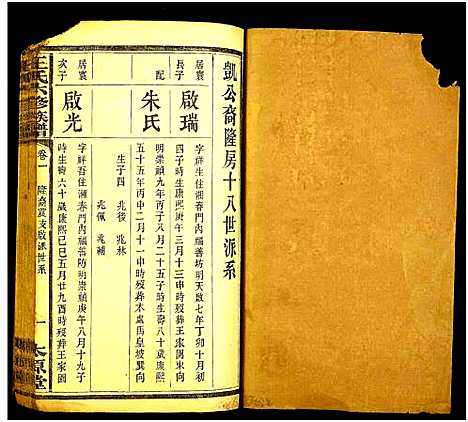 凱公裔隆房十八世派系
居寰
長子
啟瑞
字時瑞住湘春門內福善坊明天啟七年丁卯十月初
四子時生康熙庚午三月十三日子時歿葬王家園東向
配
朱氏
明崇禎九年丙子十月二十一時生康熙
五十五年丙申二月十一申時歿葬本處馬皇坡巽向
生子四 兆後 兆林
兆佩 兆補
居寰
次子
啟光
字祥吾住湘春門內福善防明崇禎庚午八月十九子
時生壽六十歲康熙己巳五月廿九酉時歿葬王家園
王氏六修族譜
卷一
隆裔寰支啟派世系
一
太原堂